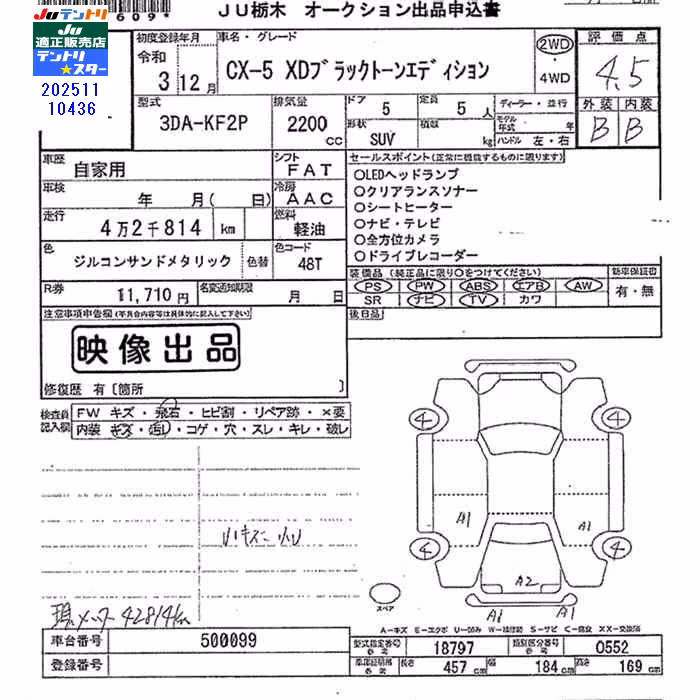 609*
JU栃木 オークション出品申込書
JUテントリ
JU
適正販売店
テントリ
★スター
202511
10436
初度登録年月
令和
3 12月
車名・グレード
CX-5 XDブラックトーンエディション
2WD
4WD
評価点
4.5
外装 内装
B B
型式
3DA-KF2P
排気量
2200 cc
ドア 5
定員 5 人
形状 SUV
積載 kg
ディーラー・並行
モデル年式 年
ハンドル 左・右
車歴
自家用
シフト
FAT
車検
年 月( 日)
冷房
AAC
走行
4万2千814 km
燃料
軽油
色
ジルコンサンドメタリック
色替
色コード
48T
R券
11,710円
名変通知期限
月 日
セールスポイント(正常に機能するものに限ります)
○LEDヘッドランプ
○クリアランスソナー
○シートヒーター
○ナビ・テレビ
○全方位カメラ
○ドライブレコーダー
装備品 (純正品に限り○をつけてください)
PS PW ABS エアB AW
SR ナビ TV カワ
新車保証書
有・無
後日品
注意事項申告欄(不具合内容等は具体的に記入して下さい)
映像出品
修復歴 有〔箇所 〕
検査員記入欄
FW キズ・飛石・ヒビ割・リペア跡・×要
内装 キズ・汚レ・コゲ・穴・スレ・キレ・破レ
小キズ 小U
現メーター 42814km
4 4
A1 A1
4 4
A2
A1 A1
スペア
A-キズ E-エクボ U-凹み W-補修跡 S-サビ C-腐食 XX-交換済
車台番号
500099
登録番号
型式指定番号 参考
18797
類別区分番号 参考
0552
車庫証明用 参考
長さ 457 cm
幅 184 cm
高さ 169 cm